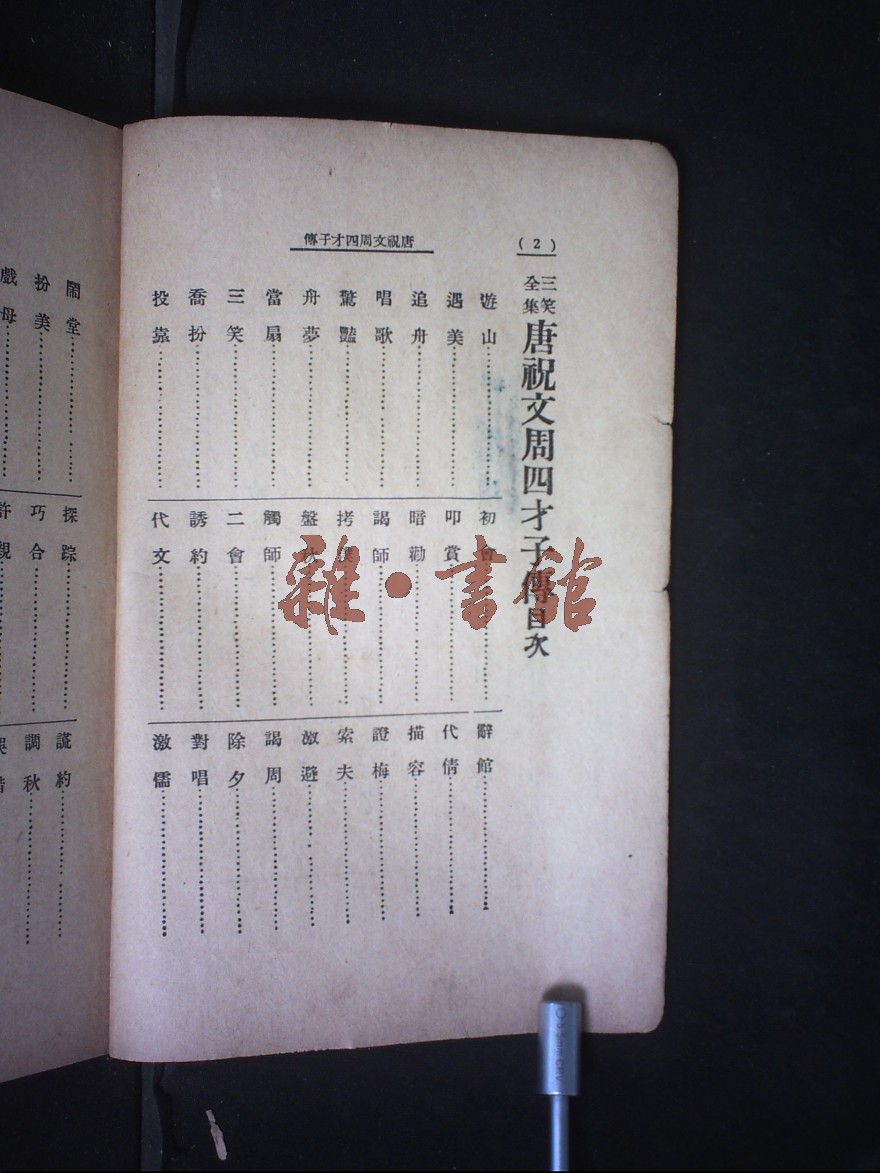 (2)
唐祝文周四才子傳
三笑
全集
唐祝文周四才子傳目次
遊山
遇美
追舟
唱歌
驚豔
舟夢
當扇
三笑
喬扮
投靠
初會
叩賞
暗勸
謁師
拷
盤秋
觸師
二會
誘約
代文
辭館
代倩
描容
證梅
索夫
放避
謁周
除夕
對唱
激儒
鬧堂
扮美
戲母
探踪
巧合
謊約
調秋
雜·書館